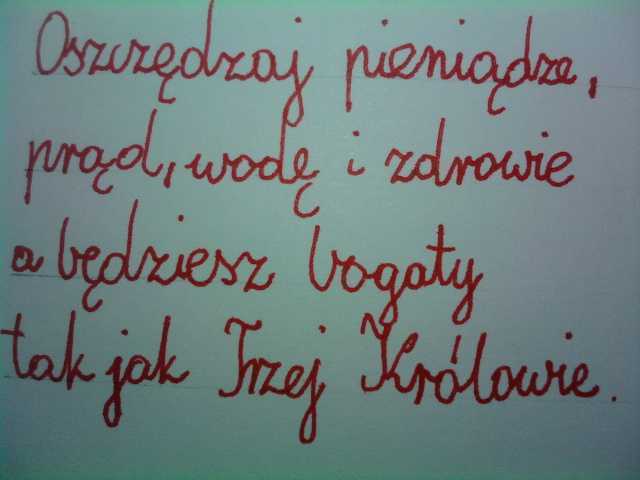 Oszczędzaj pieniądze,
prąd, wodę i zdrowie
a będziesz bogaty
tak jak Trzej Królowie.